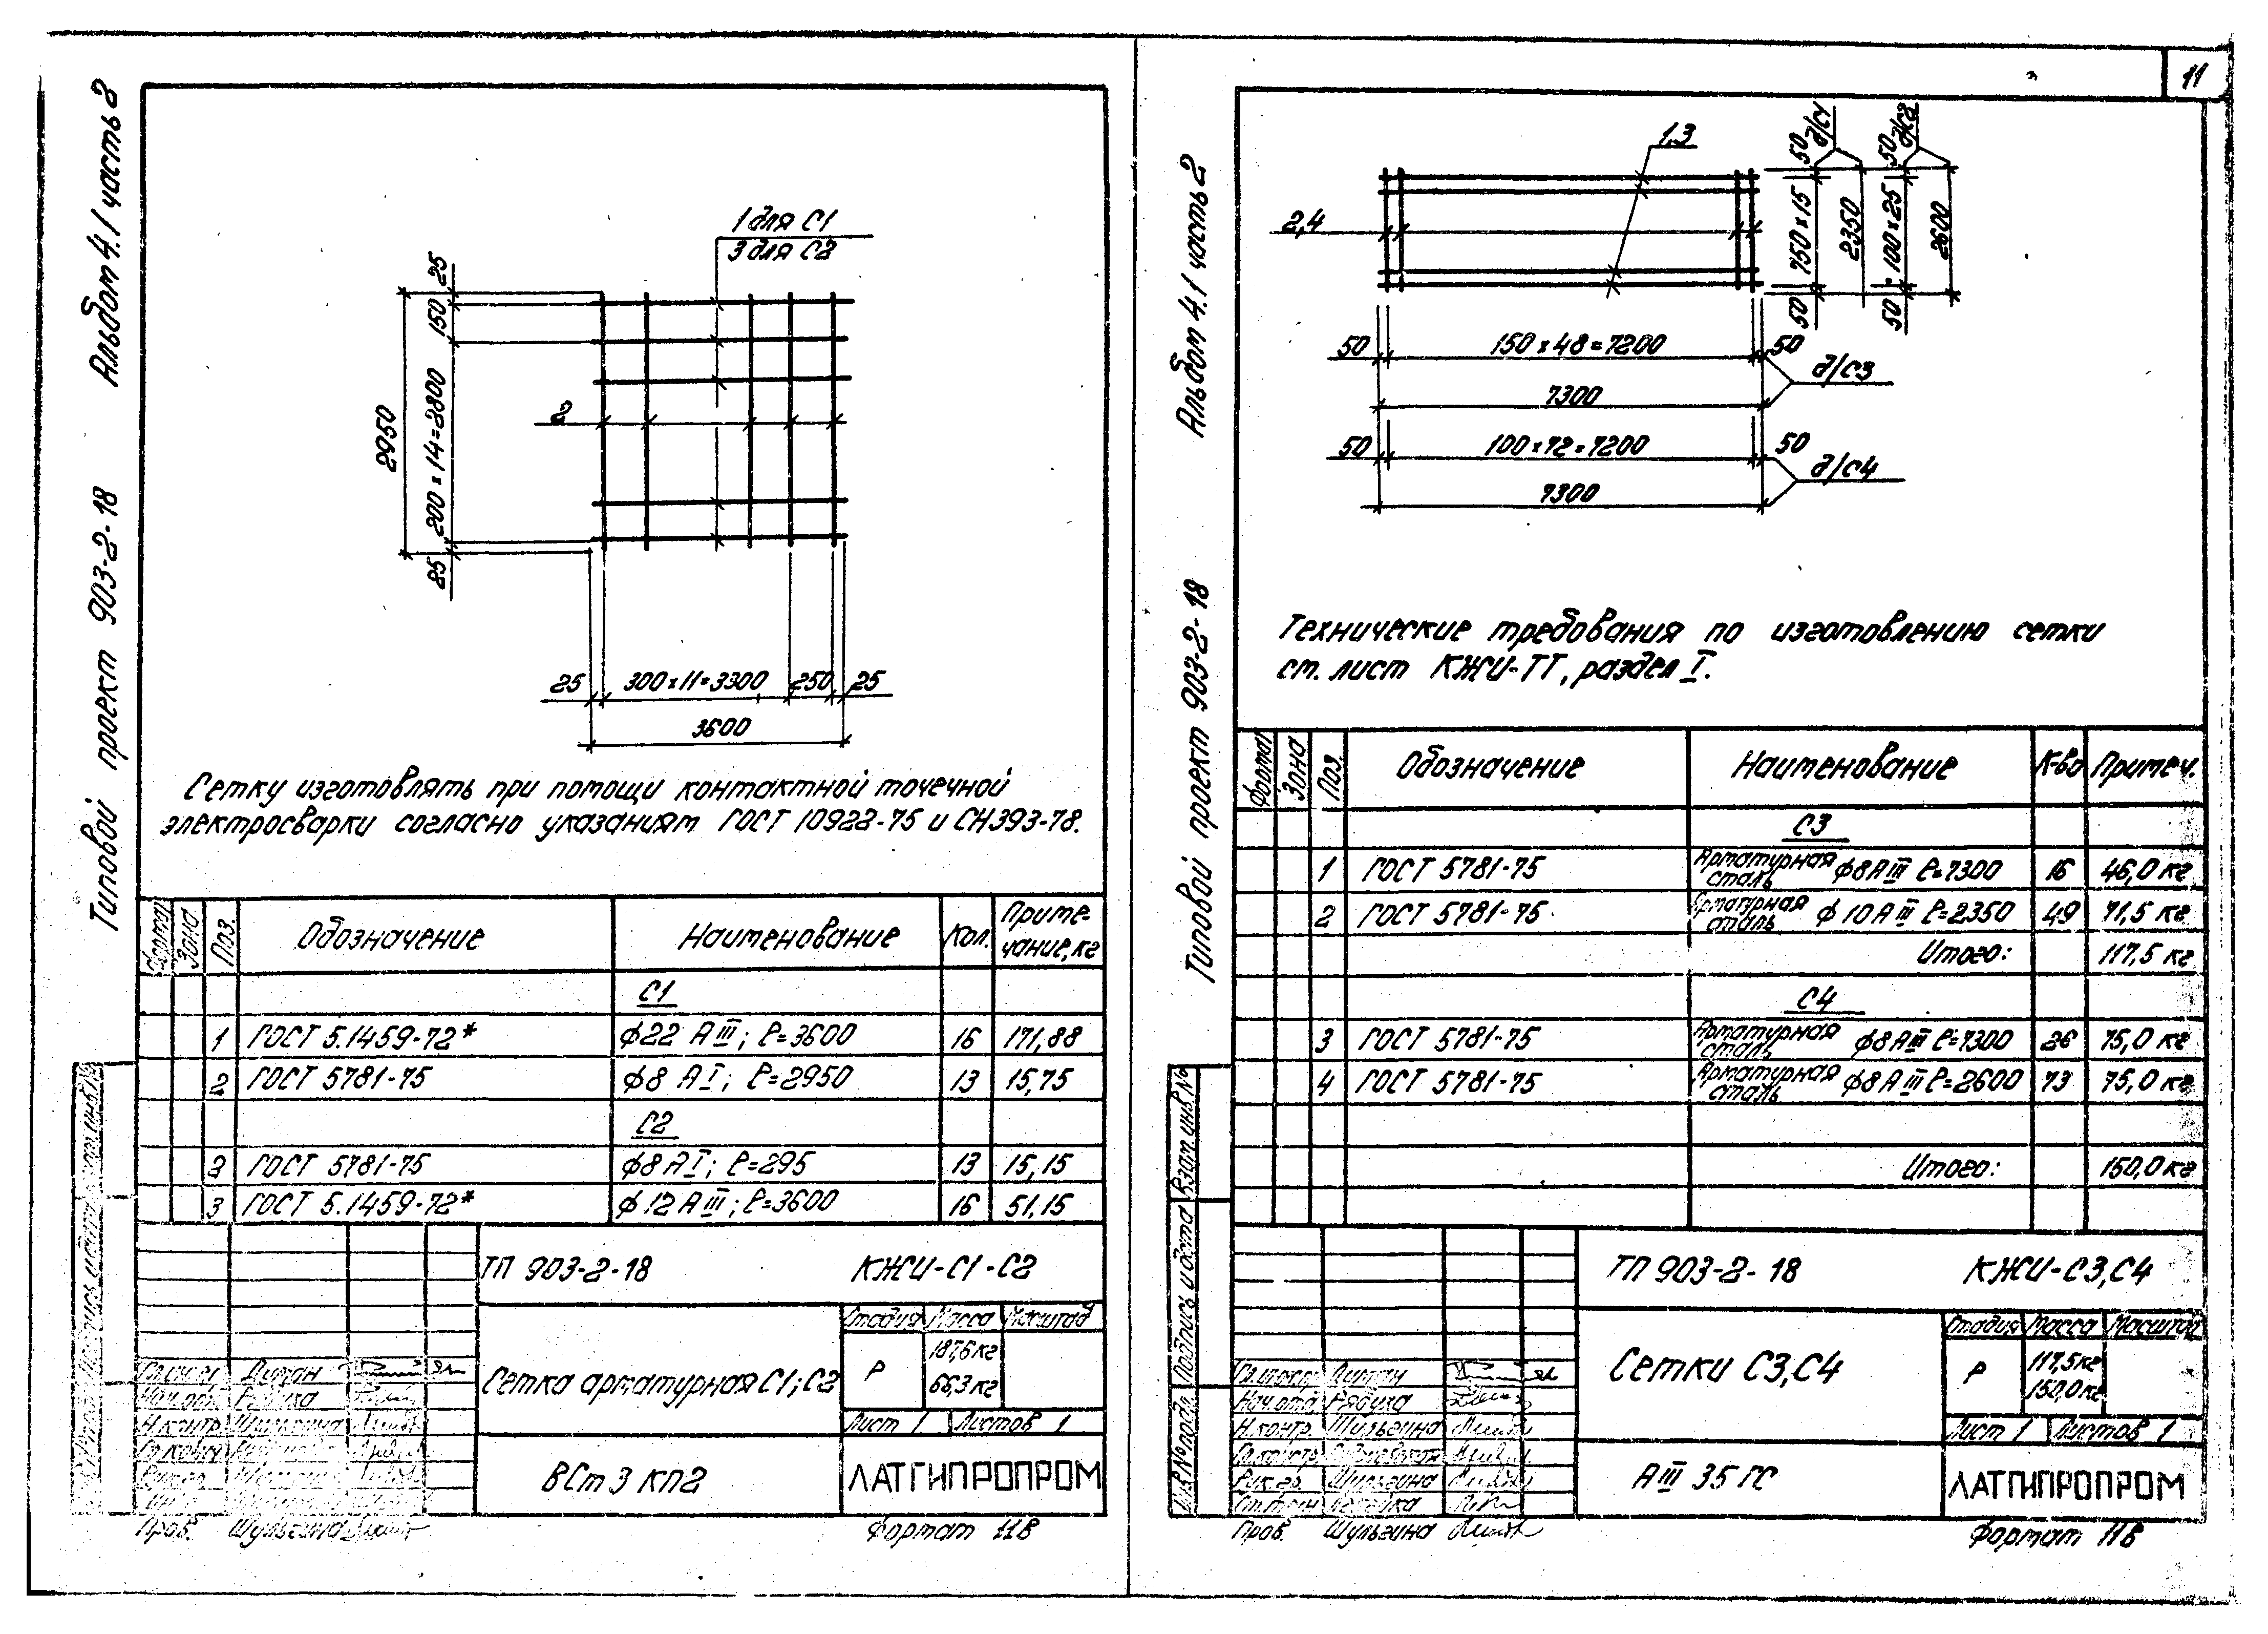 11
Альбом 4.1 часть 2
Типовой проект 903-2-18
1 для С1
3 для С2
25
150
200 x 14=2800
2950
25
2
25
300x11=3300
250
25
3600
Сетку изготовлять при помощи контактной точечной
электросварки согласно указаниям ГОСТ 10922-75 и СН393-78.
Формат Зона Поз. Обозначение Наименование Кол. Приме-
чание, кг
С1
1 ГОСТ 5.1459-72* ϕ22 АIII; ℓ=3600 16 171,88
2 ГОСТ 5781-75 ϕ8 АI; ℓ=2950 13 15,75
С2
2 ГОСТ 5781-75 ϕ8 АI; ℓ=295 13 15,15
3 ГОСТ 5.1459-72* ϕ12 АIII; ℓ=3600 16 51,15
ТП 903-2-18 КЖИ-С1-С2
Сетка арматурная С1; С2
Стадия Масса Масштаб
Р
187,6 кг
66,3 кг
Лист 1 Листов 1
ВСт 3 КП2
ЛАТГИПРОПРОМ
Н.контр. Шульгина
Пров. Шульгина
Формат 11В
Альбом 4.1 часть 2
Типовой проект 903-2-18
1,3
2,4
50
150 x 15
50
д/С1
2350
50
100 x 25
50
д/С2
2600
50
150 x 48=7200
50
д/С3
7300
50
100 x 72=7200
50
д/С4
7300
Технические требования по изготовлению сетки
см. лист КЖИ-ТТ, раздел I.
Формат Зона Поз. Обозначение Наименование К-во Примеч.
С3
1 ГОСТ 5781-75 Арматурная сталь ϕ8АIII ℓ=7300 16 46,0 кг
2 ГОСТ 5781-75 Арматурная сталь ϕ10АIII ℓ=2350 49 71,5 кг
Итого: 117,5 кг
С4
3 ГОСТ 5781-75 Арматурная сталь ϕ8АIII ℓ=7300 26 75,0 кг
4 ГОСТ 5781-75 Арматурная сталь ϕ8АIII ℓ=2600 73 75,0 кг
Итого: 150,0 кг
Взам. инв. №
Подпись и дата
Инв. № подл.
ТП 903-2-18 КЖИ-С3,С4
Сетки С3,С4
Стадия Масса Масштаб
Р
117,5кг
150,0кг
Лист 1 Листов 1
АIII 35 ГС
ЛАТГИПРОПРОМ
Нач.отд. Рябуха
Н.контр. Шульгина
Рук.гр. Шульгина
Пров. Шульгина
Формат 11В